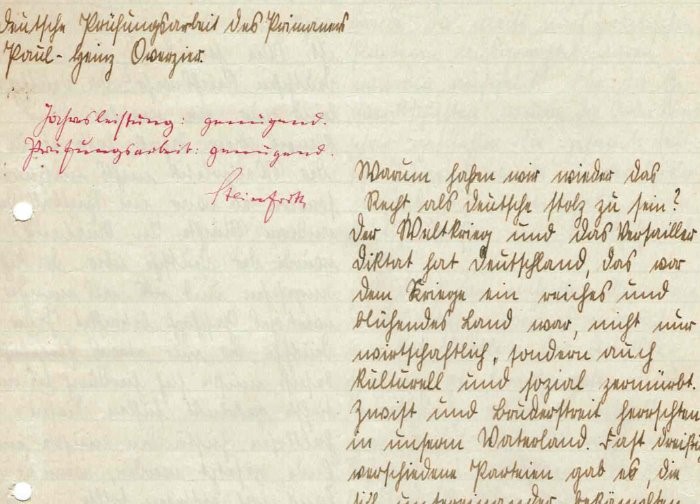 Deutsche Prüfungsarbeit des Primaners
Paul-Heinz Overzier.
Jahresleistung: genügend.
Prüfungsarbeit: genügend.
Steinforth
Warum haben wir wieder das
Recht als Deutsche stolz zu sein?
Der Weltkrieg und das Versailler
Diktat hat Deutschland, das vor
dem Kriege ein reiches und
blühendes Land war, nicht nur
wirtschaftlich, sondern auch
kulturell und sozial zermürbt.
Zwist und Bruderstreit herrschten
in unserm Vaterland. Fast dreißi
verschiedene Parteien gab es, die
sich untereinander bekämpften